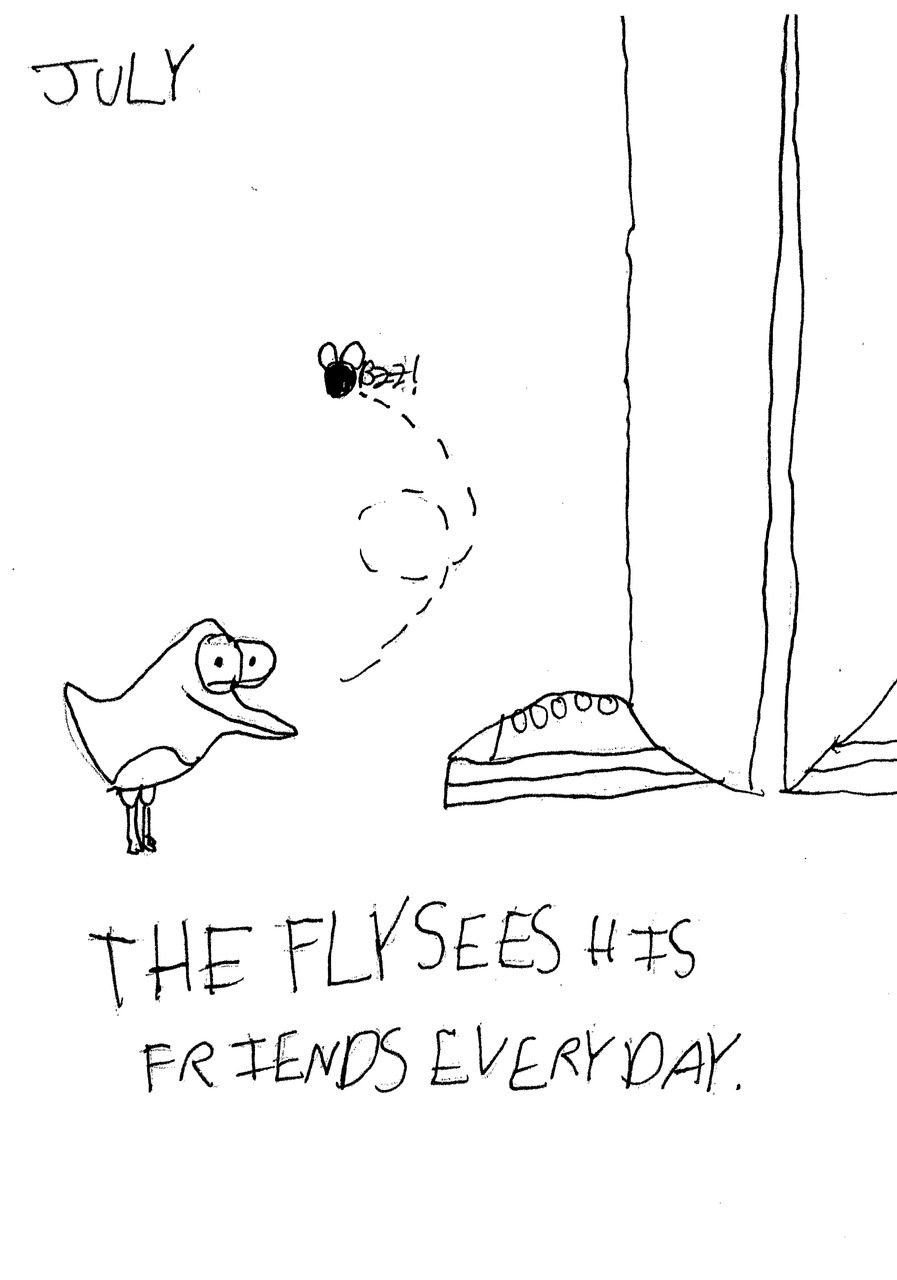 JULY
BZZ!
THE FLY SEES HIS
FRIENDS EVERY DAY.